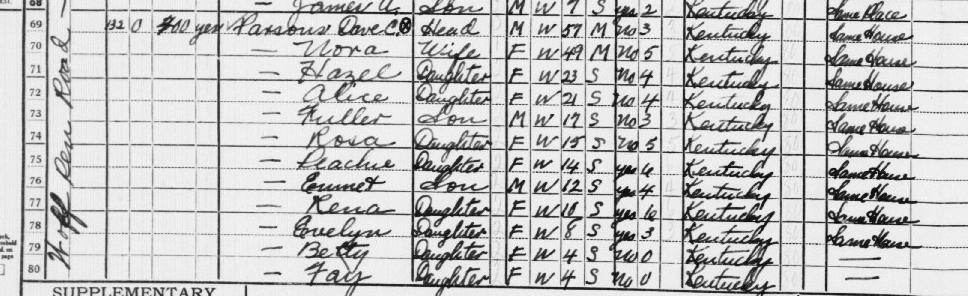 68 James A. Son M W 7 S yes 2 Kentucky Same Place
69 132 O 700 yes Parsons Dave C. Ⓧ Head M W 57 M no 3 Kentucky Same House
70 — Nora Wife F W 49 M no 5 Kentucky Same House
71 — Hazel Daughter F W 23 S no 4 Kentucky Same House
72 — Alice Daughter F W 21 S no 4 Kentucky Same House
73 — Fuller Son M W 17 S no 3 Kentucky Same House
74 — Rosa Daughter F W 15 S no 5 Kentucky Same House
75 — Peachie Daughter F W 14 S yes 6 Kentucky Same House
76 — Emmet Son M W 12 S yes 4 Kentucky Same House
77 — Rena Daughter F W 10 S yes 6 Kentucky Same House
78 — Evelyn Daughter F W 8 S yes 3 Kentucky Same House
79 — Betty Daughter F W 4 S no 0 Kentucky —
80 — Fay Daughter F W 4 S no 0 Kentucky —
Pen Road
SUPPLEMENTARY